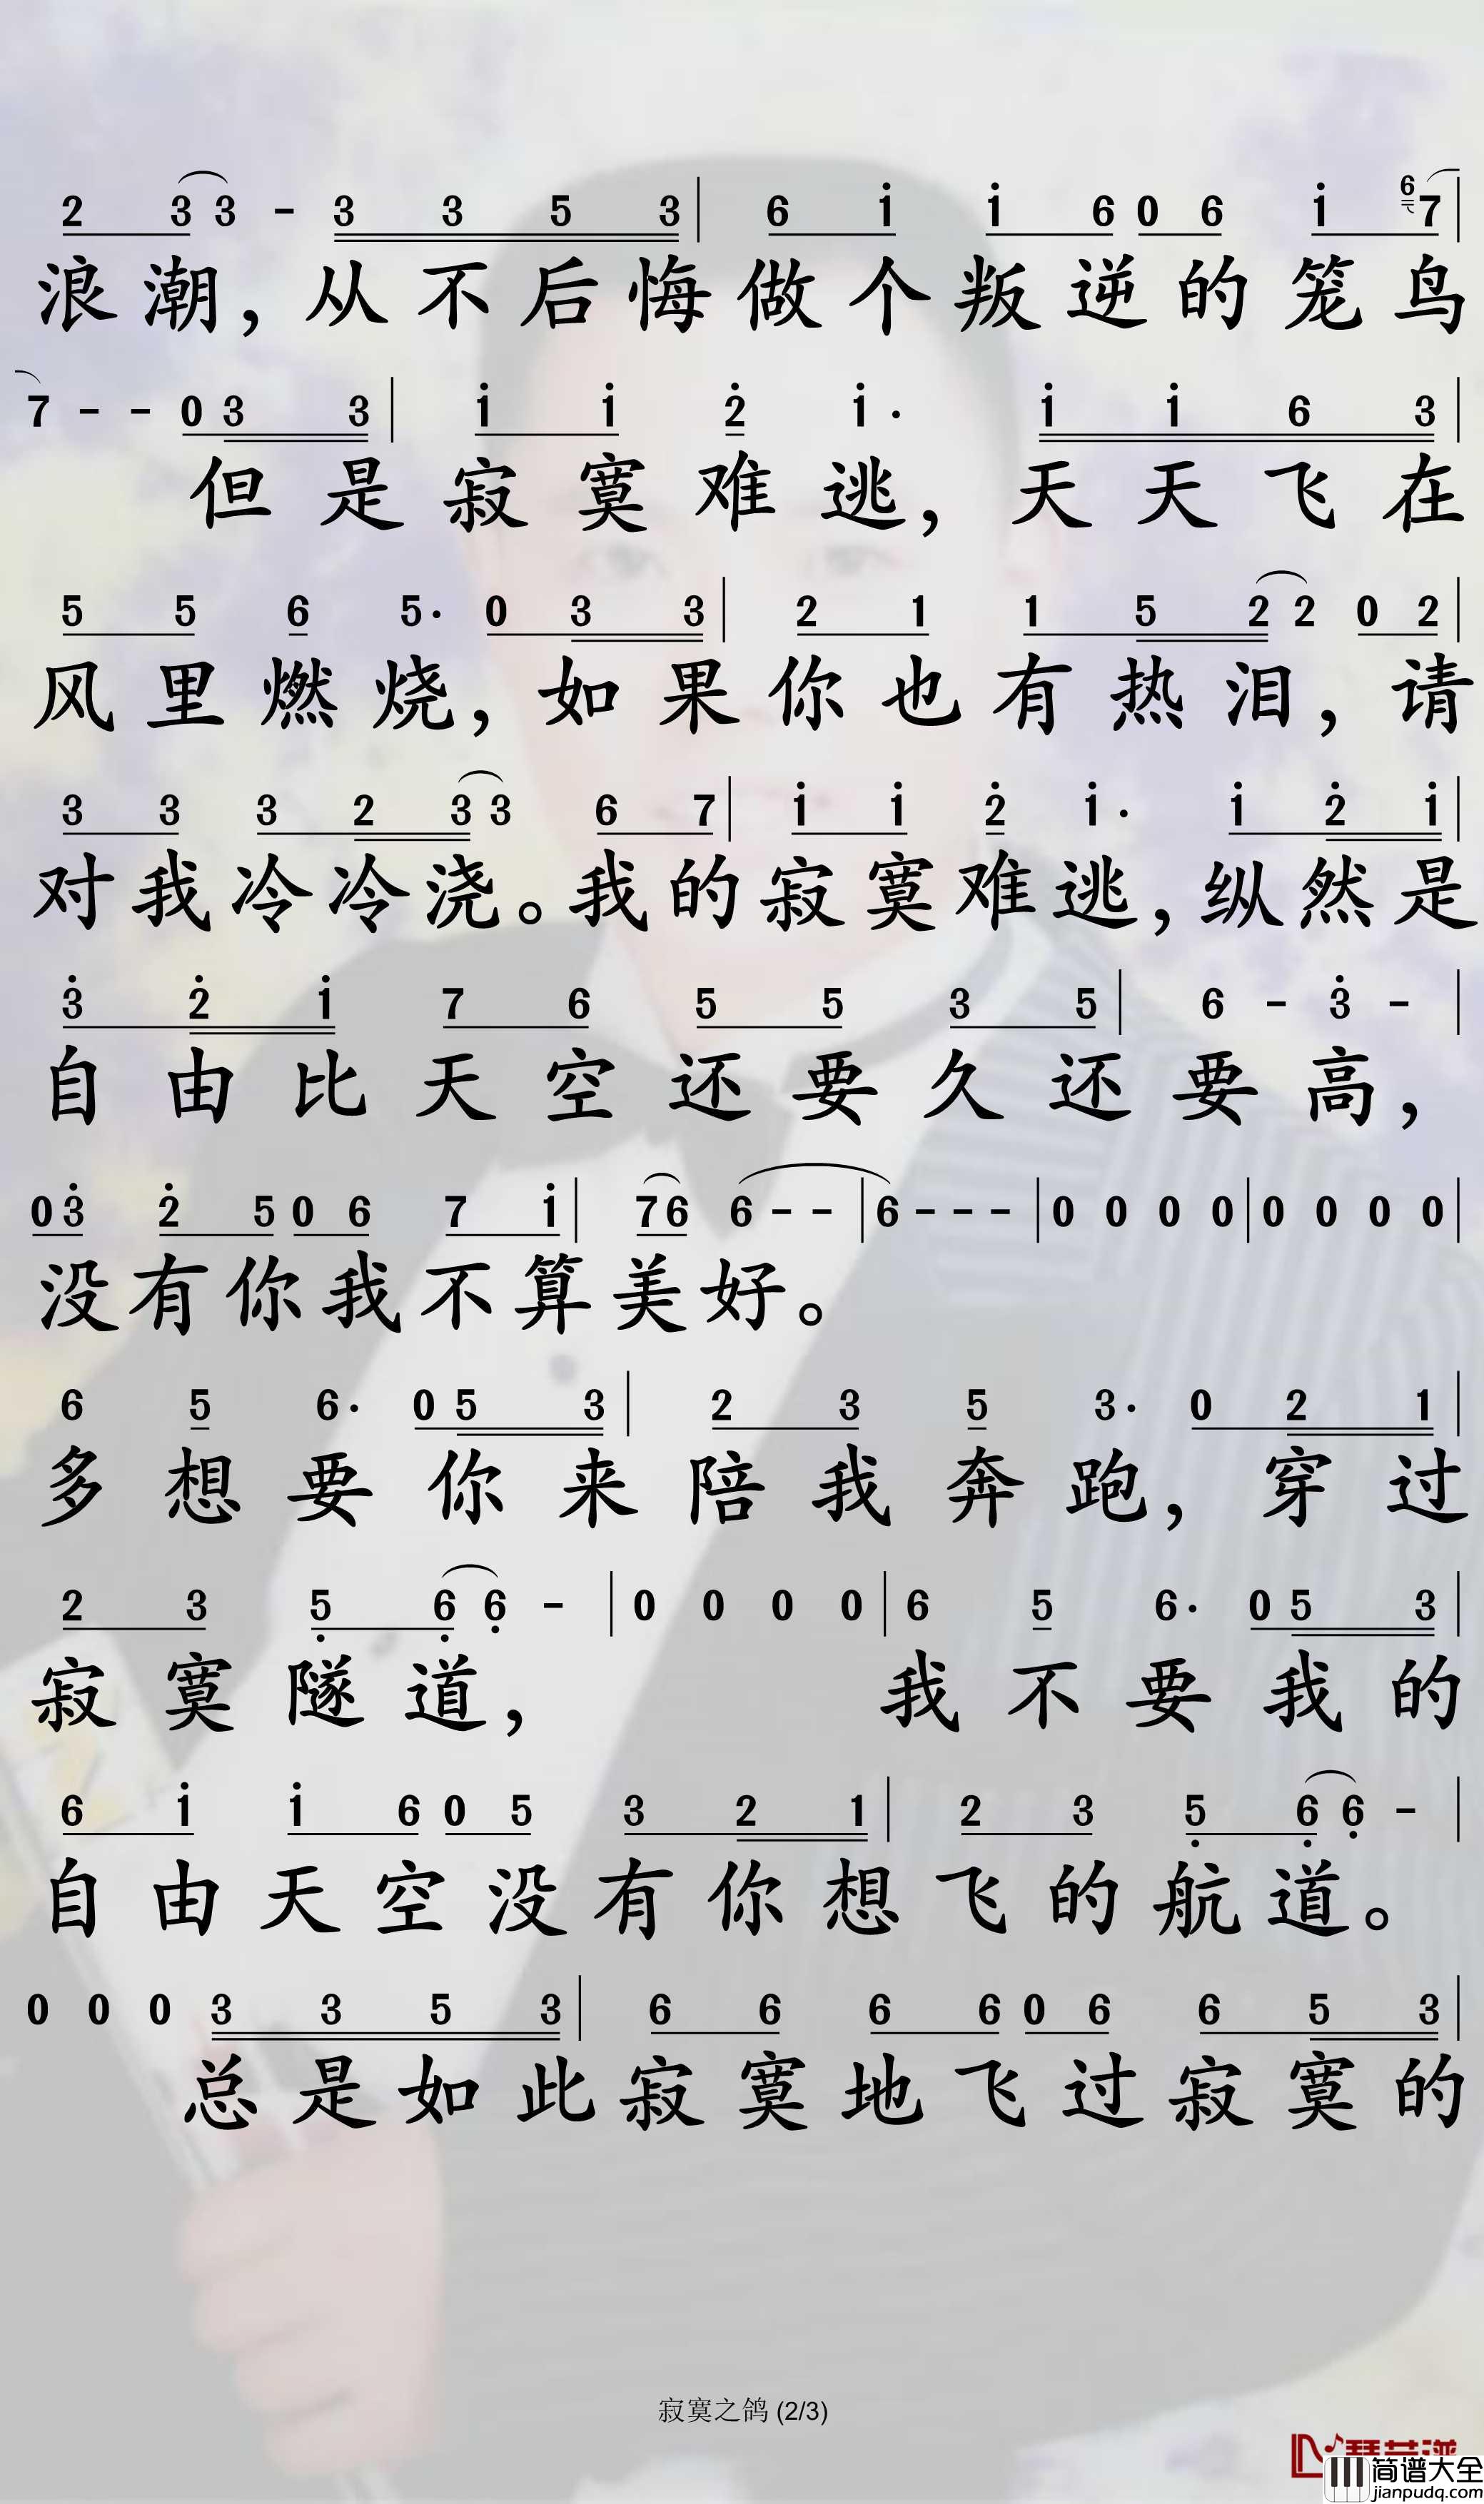 2 3 3 - 3 3 5 3 | 6 i i 6 0 6 i 6 7 |
浪潮，从不后悔做个叛逆的笼鸟
7 - - 0 3 3 | i i 2̇ i· i i 6 3 |
但是寂寞难逃，天天飞在
5 5 6 5· 0 3 3 | 2 1 1 5 2 2 0 2 |
风里燃烧，如果你也有热泪，请
3 3 3 2 3 3 6 7 | i i 2̇ i· i 2̇ i |
对我冷冷浇。我的寂寞难逃，纵然是
3̇ 2̇ i 7 6 5 5 3 5 | 6 - 3̇ - |
自由比天空还要久还要高，
0 3̇ 2̇ 5 0 6 7 i | 7 6 6 - - | 6 - - - | 0 0 0 0 | 0 0 0 0 |
没有你我不算美好。
6 5 6· 0 5 3 | 2 3 5 3· 0 2 1 |
多想要你来陪我奔跑，穿过
2 3 5̣ 6̣ 6̣ - | 0 0 0 0 | 6 5 6· 0 5 3 |
寂寞隧道，我不要我的
6 i i 6 0 5 3 2 1 | 2 3 5̣ 6̣ 6̣ - |
自由天空没有你想飞的航道。
0 0 0 3 3 5 3 | 6 6 6 6 0 6 6 5 3 |
总是如此寂寞地飞过寂寞的
寂寞之鸽 (2/3)
简谱大全
jianpudq.com